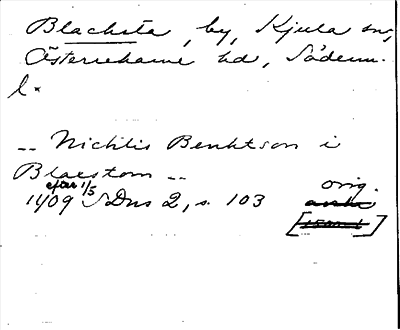 Blacksta, by, Kjula sn,
Österrekarne hd, Söderm.
l.
-- Nichlis Benktson i
Blaestom --
efter 1/5 orig.
1409 SDns 2, s. 103